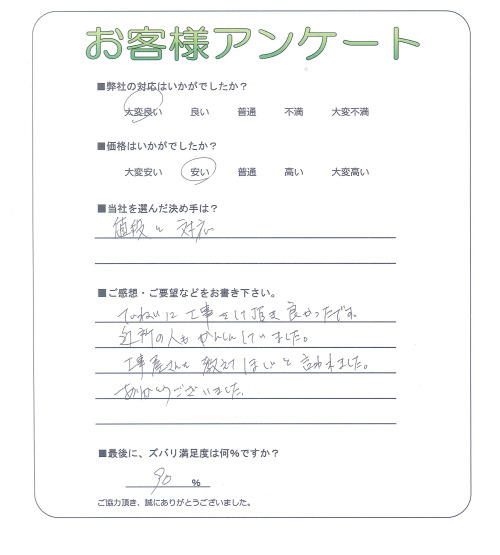 お客様アンケート
■弊社の対応はいかがでしたか？
大変良い 良い 普通 不満 大変不満
■価格はいかがでしたか？
大変安い 安い 普通 高い 大変高い
■当社を選んだ決め手は？
値段と対応
■ご感想・ご要望などをお書き下さい。
ていねいに工事をして頂き良かったです。
近所の人もかんしんしていました。
工事屋さんを教えてほしいと言われました。
ありがとうございました。
■最後に、ズバリ満足度は何％ですか？
90 ％
ご協力頂き、誠にありがとうございました。